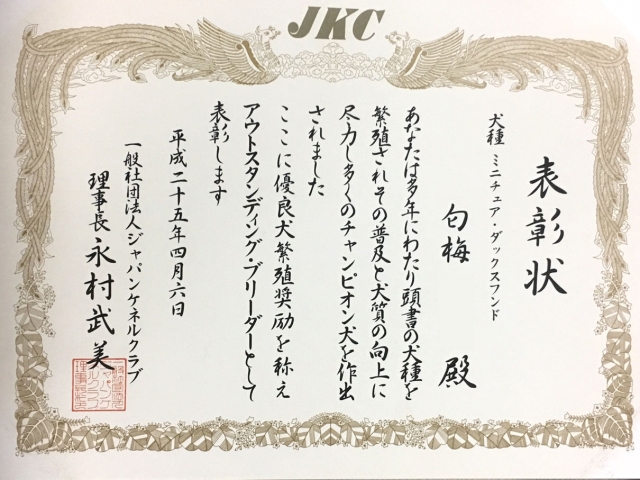 JKC
表彰状
犬種 ミニチュア・ダックスフンド
匂梅 殿
あなたは多年にわたり頭書の犬種を
繁殖されその普及と犬質の向上に
尽力し多くのチャンピオン犬を作出
されました
ここに優良犬繁殖奨励を称え
アウトスタンディング・ブリーダーとして
表彰します
平成二十五年四月六日
一般社団法人ジャパンケネルクラブ
理事長 永村武美